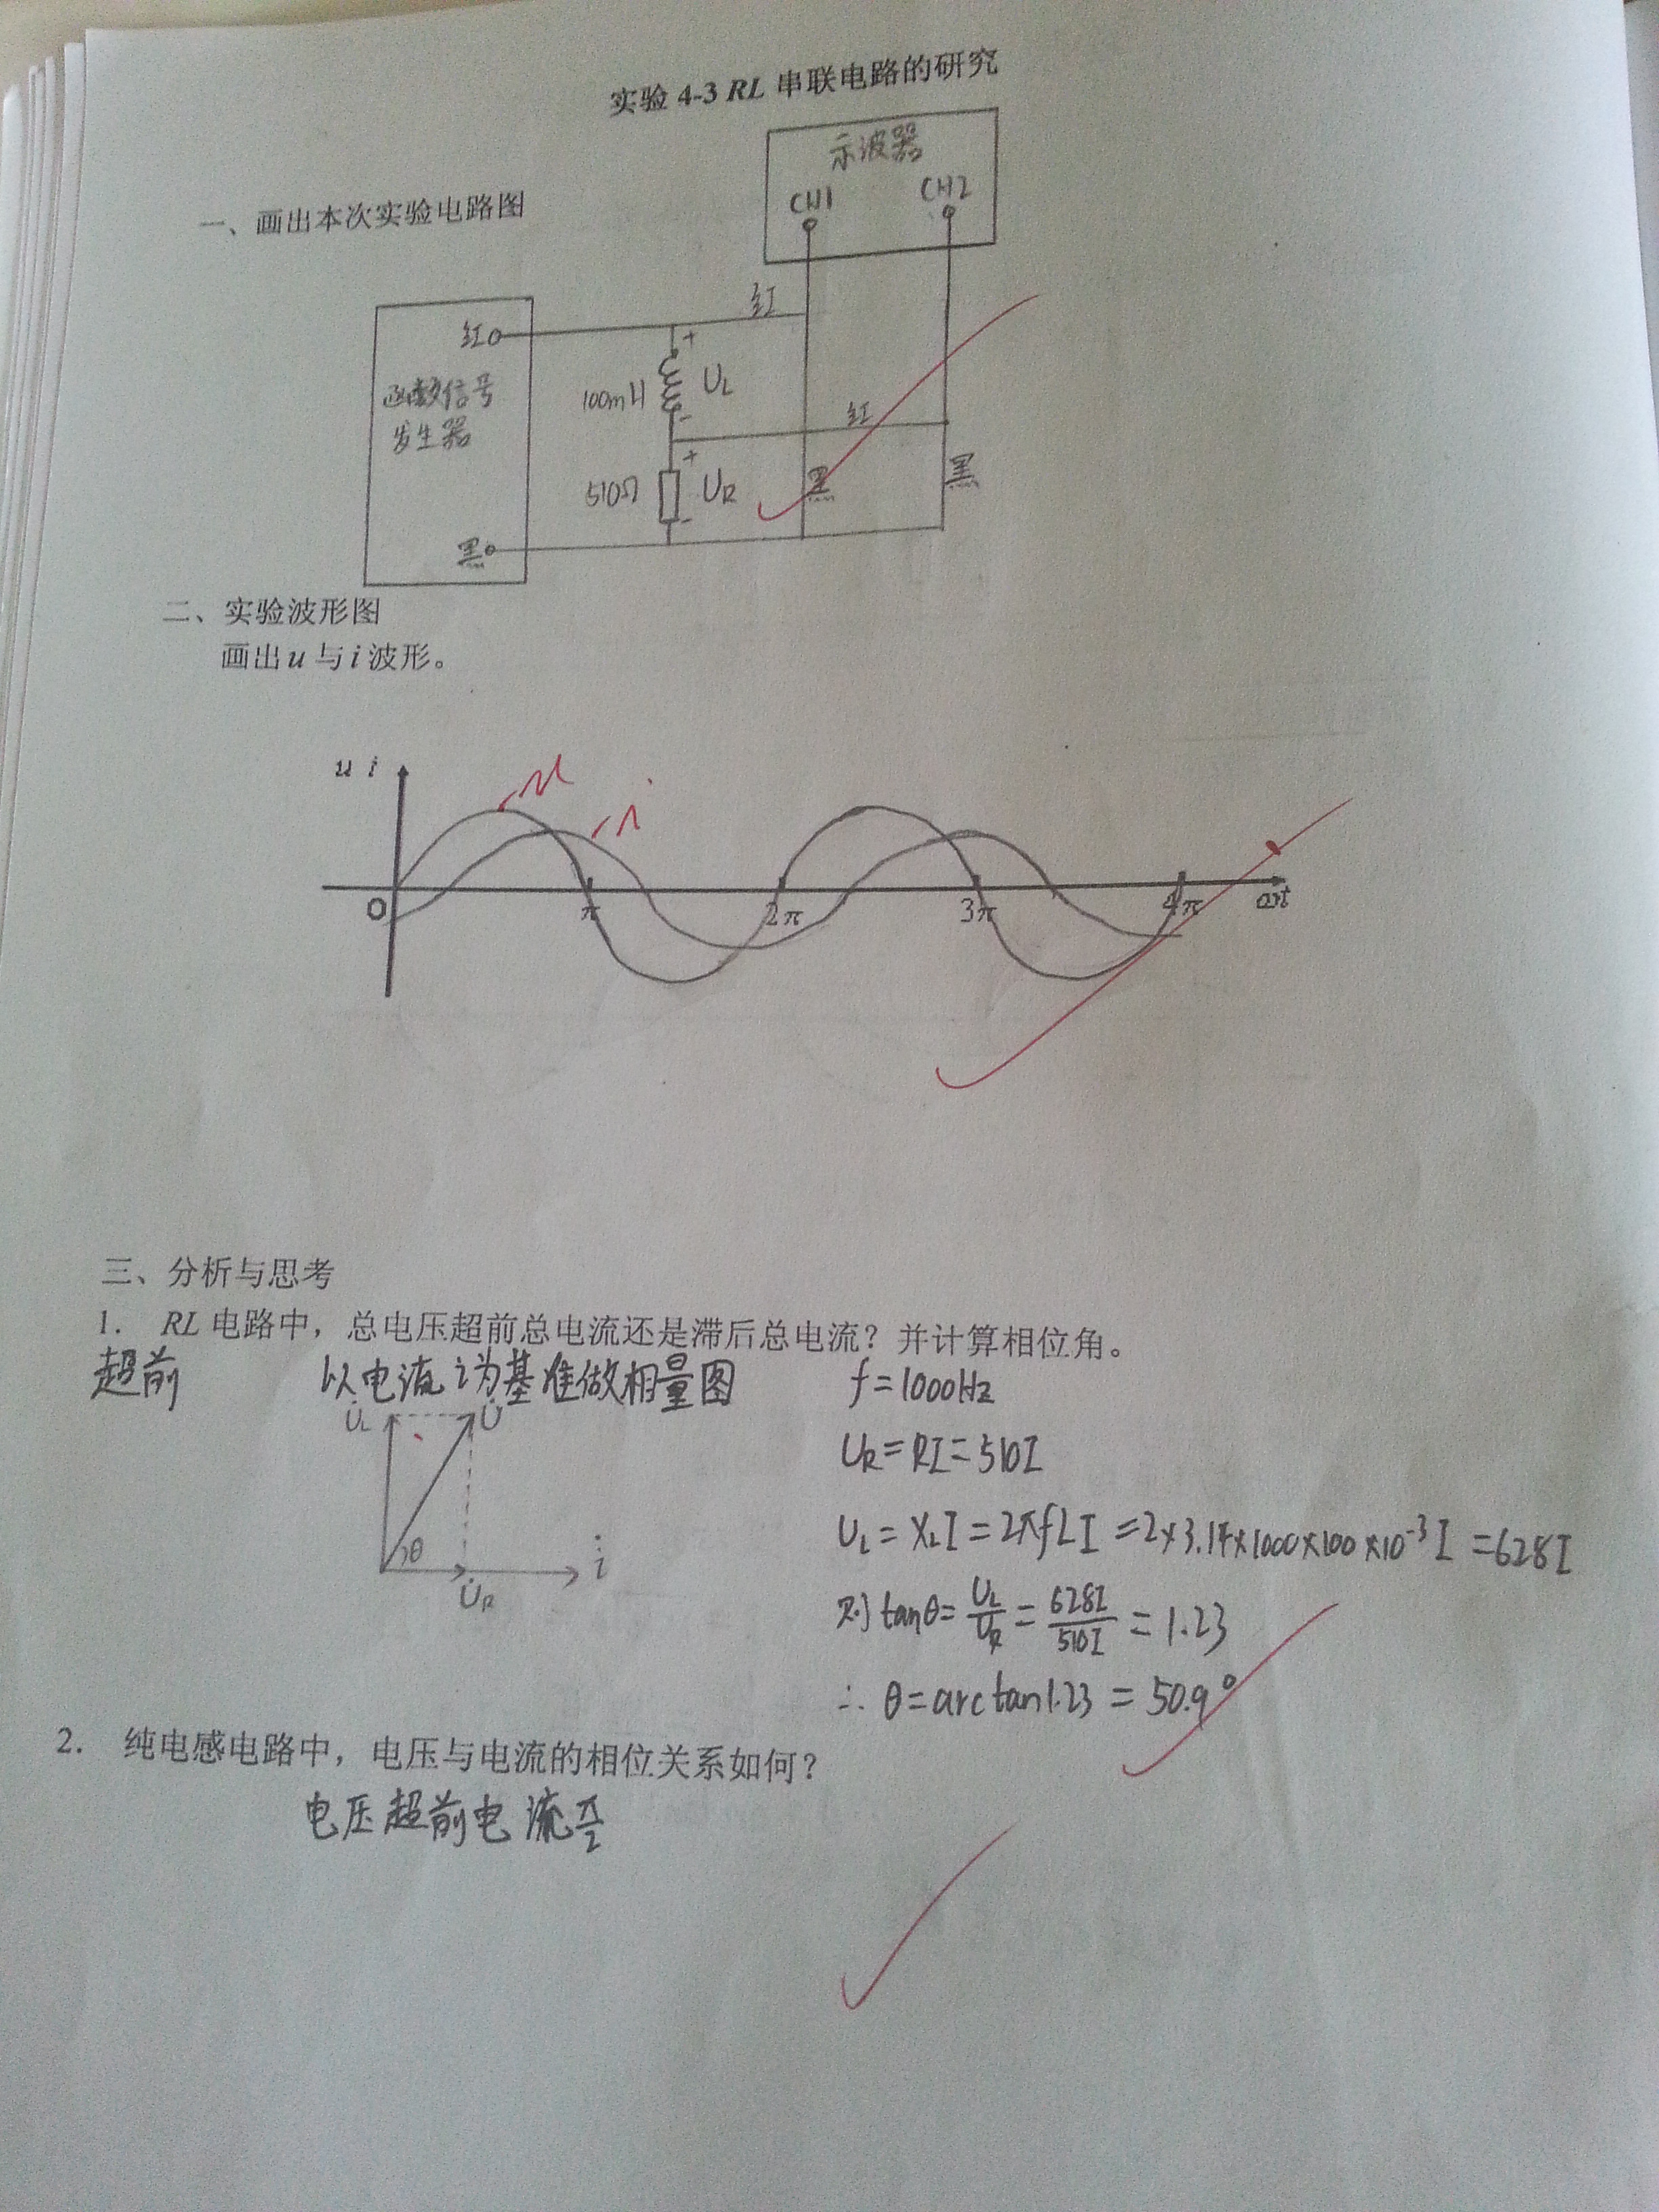 实验 4-3 RL 串联电路的研究
示波器
CH1 CH2
一、画出本次实验电路图
红
红
函数信号
发生器
100mH
+
UL
-
红
510Ω
+
UR
-
黑
黑
黑
二、实验波形图
画出 u 与 i 波形。
u i
u
i
0 π 2π 3π 4π ωt
三、分析与思考
1. RL 电路中，总电压超前总电流还是滞后总电流？并计算相位角。
超前 以电流i为基准做相量图
U̇L U̇
θ
U̇R
i̇
f=1000Hz
UR=RI=510I
UL=XLI=2πfLI=2×3.14×1000×100×10⁻³I=628I
则tanθ=UL/UR=628I/510I=1.23
∴ θ=arctan1.23=50.9°
2. 纯电感电路中，电压与电流的相位关系如何？
电压超前电流π/2